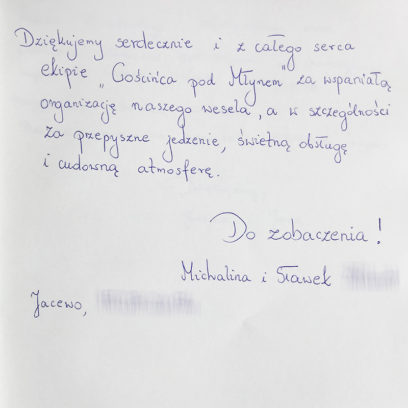 Dziękujemy serdecznie i z całego serca
ekipie „Gościńca pod Młynem” za wspaniałą
organizację naszego wesela, a w szczególności
za przepyszne jedzenie, świetną obsługę
i cudowną atmosferę.
Do zobaczenia!
Michalina i Sławek
Jacewo,